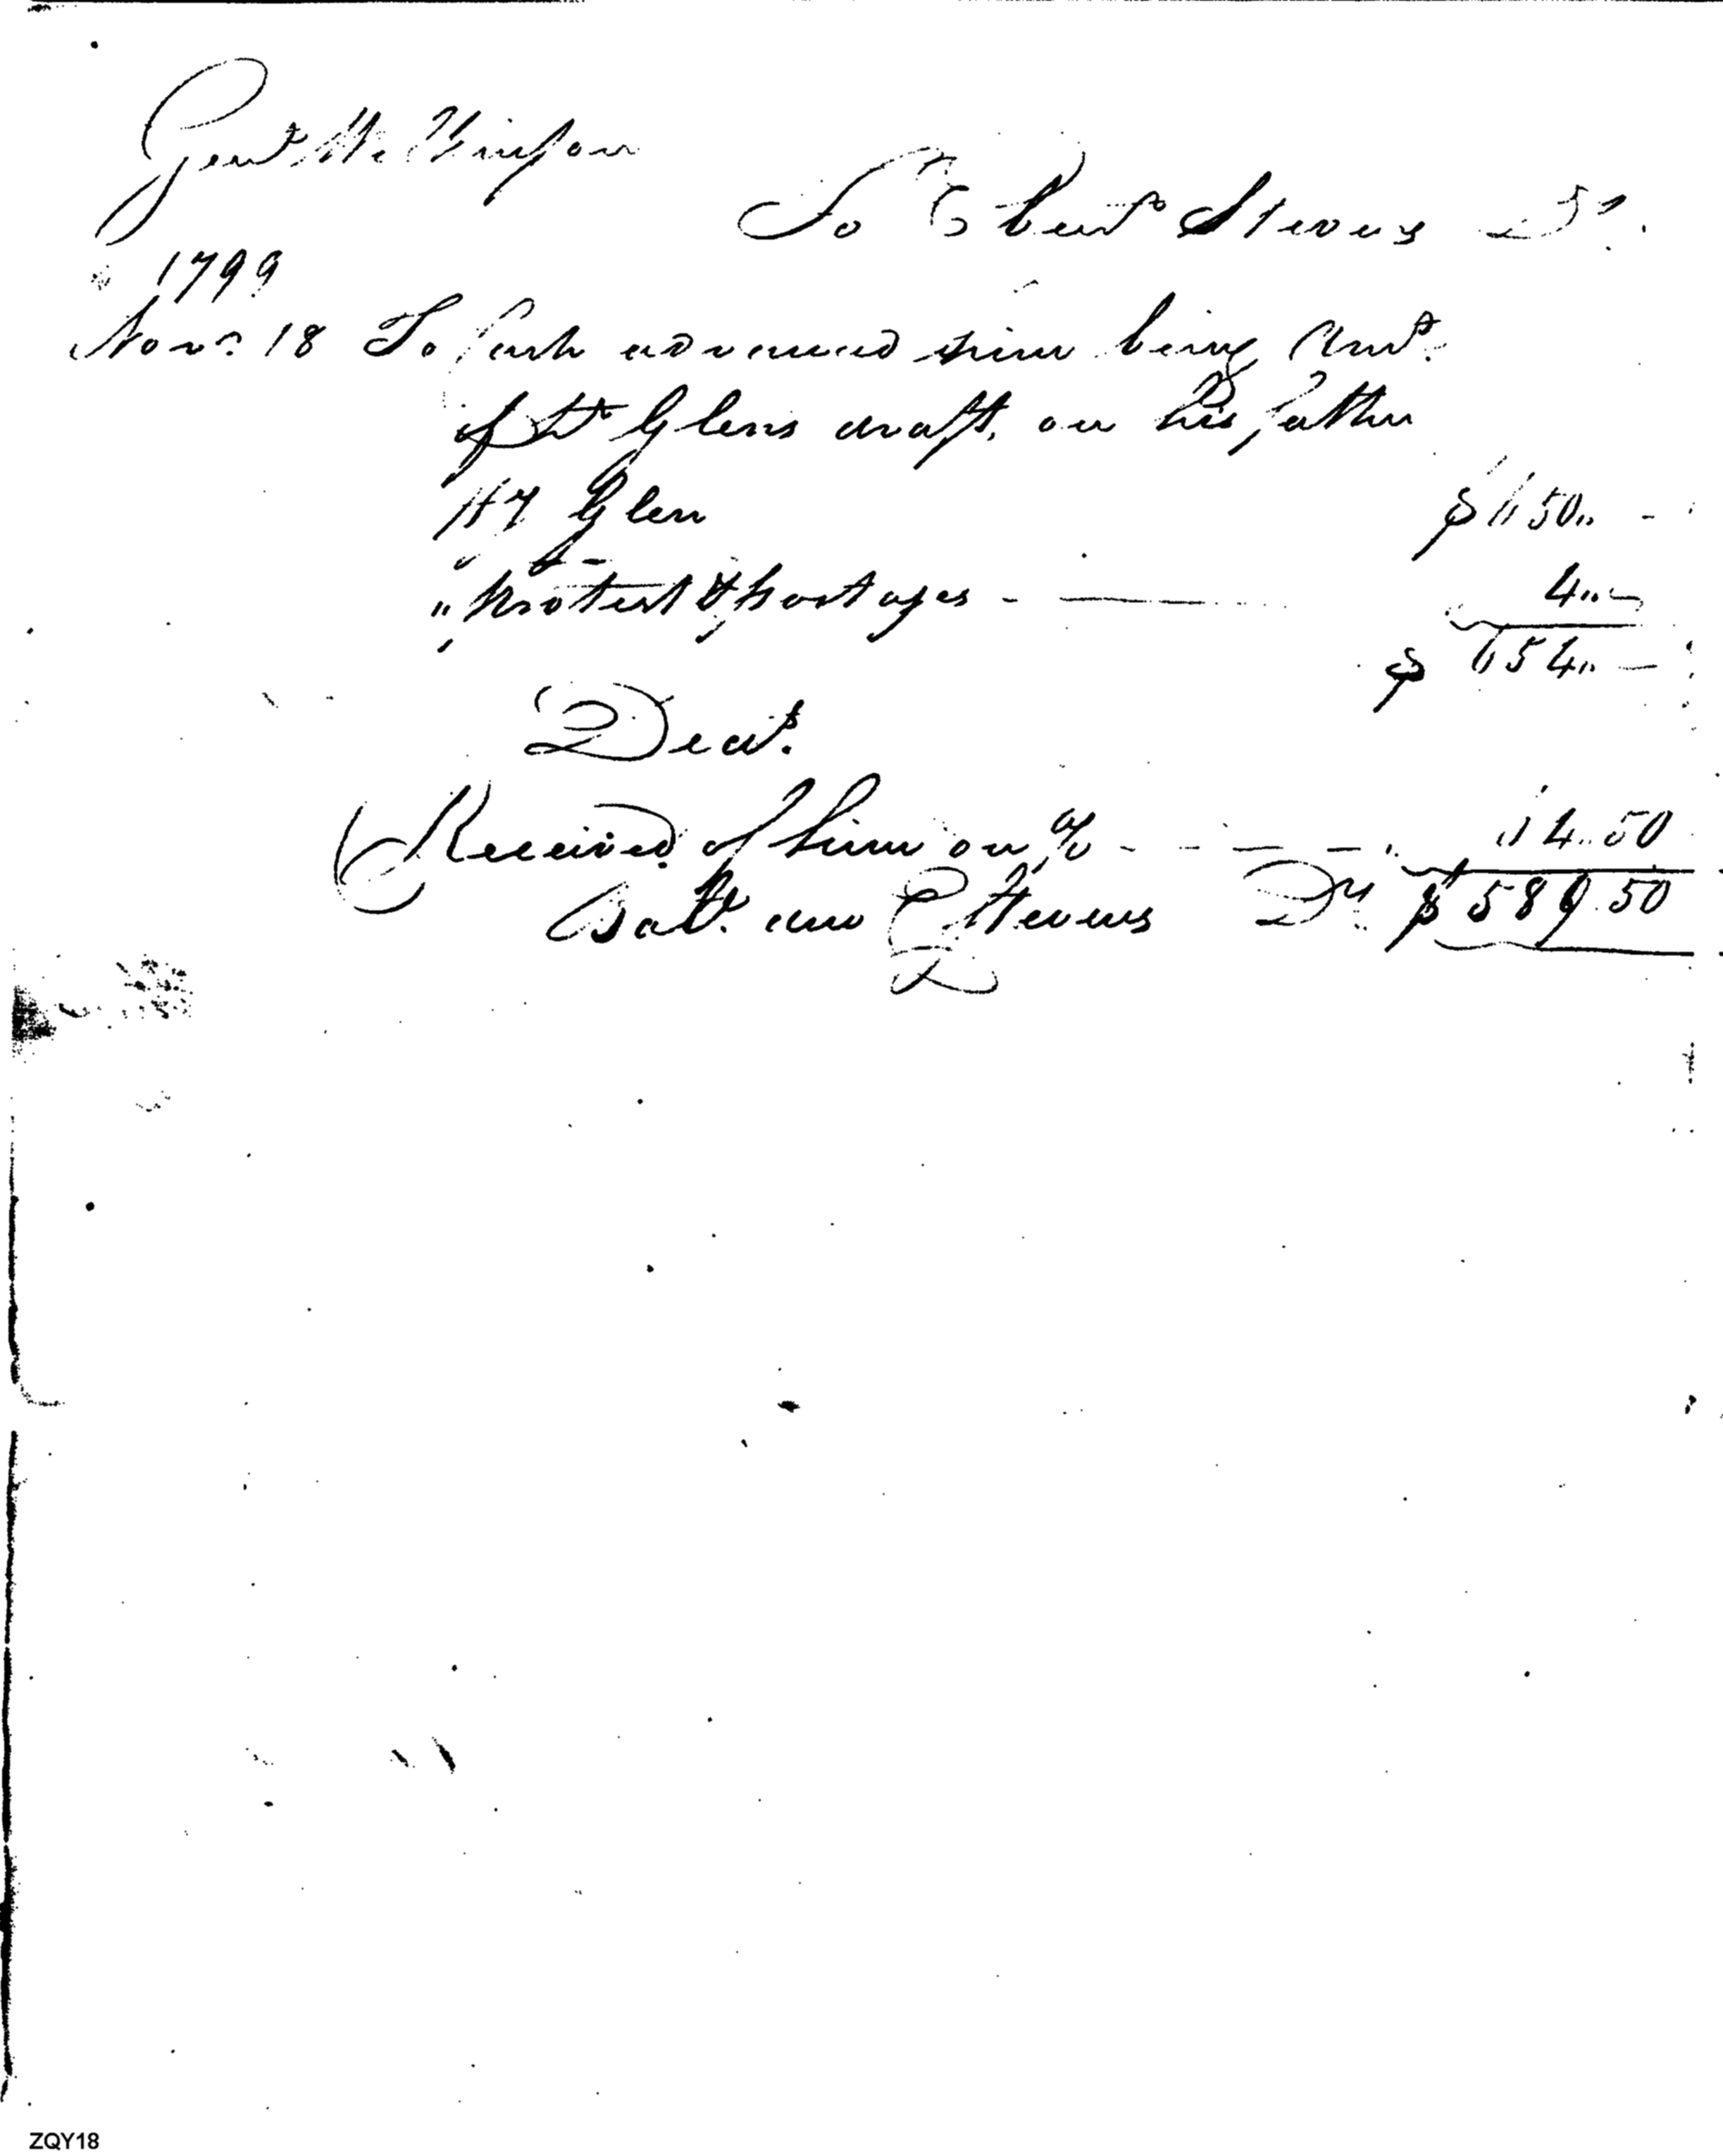 Genl. Wilkinson
To Ebenr Stevens Dr.
1799
Novr. 18 To Cash advanced him being Amt.
of Glens draft, on his father
Hy Glen $ 650,, -
" Protest & Postages - 4,,-
$ 654,, -
Dedt.
Received of him on a/c - - - - 64..50
Balc. due E Stevens Drs $ 589.50
ZQY18